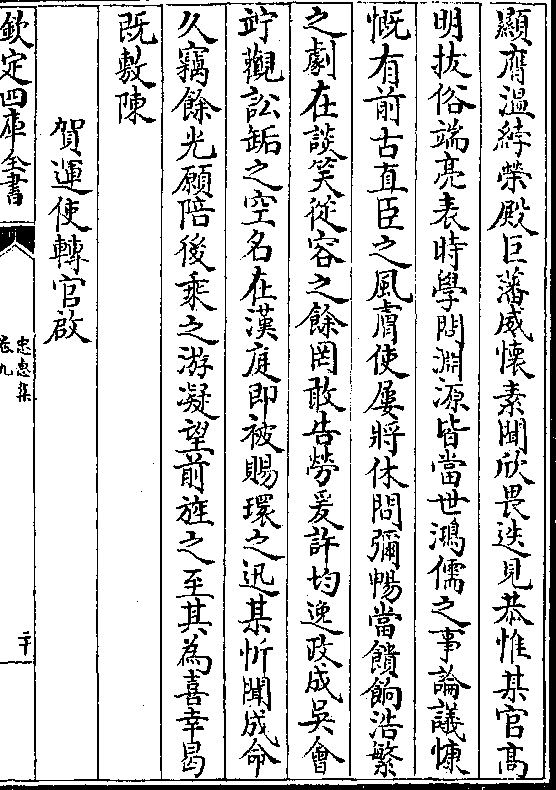 顯膺溫綍榮殿巨藩威懷素聞欣畏迭見恭惟某官髙
明拔俗端亮表時學問淵源皆當世鴻儒之事論議慷
慨有前古直臣之風膚使屢將休問彌暢當饋餉浩繁
之劇在談笑從容之餘罔敢告勞爰許均逸政成吳會
竚觀訟缿之空名在漢庭即被賜環之迅某忻聞成命
久竊餘光願陪後乘之游凝望前旌之至其為喜幸曷
既敷陳
賀運使轉官啟
欽定四庫全書
忠惠集
卷九
二十